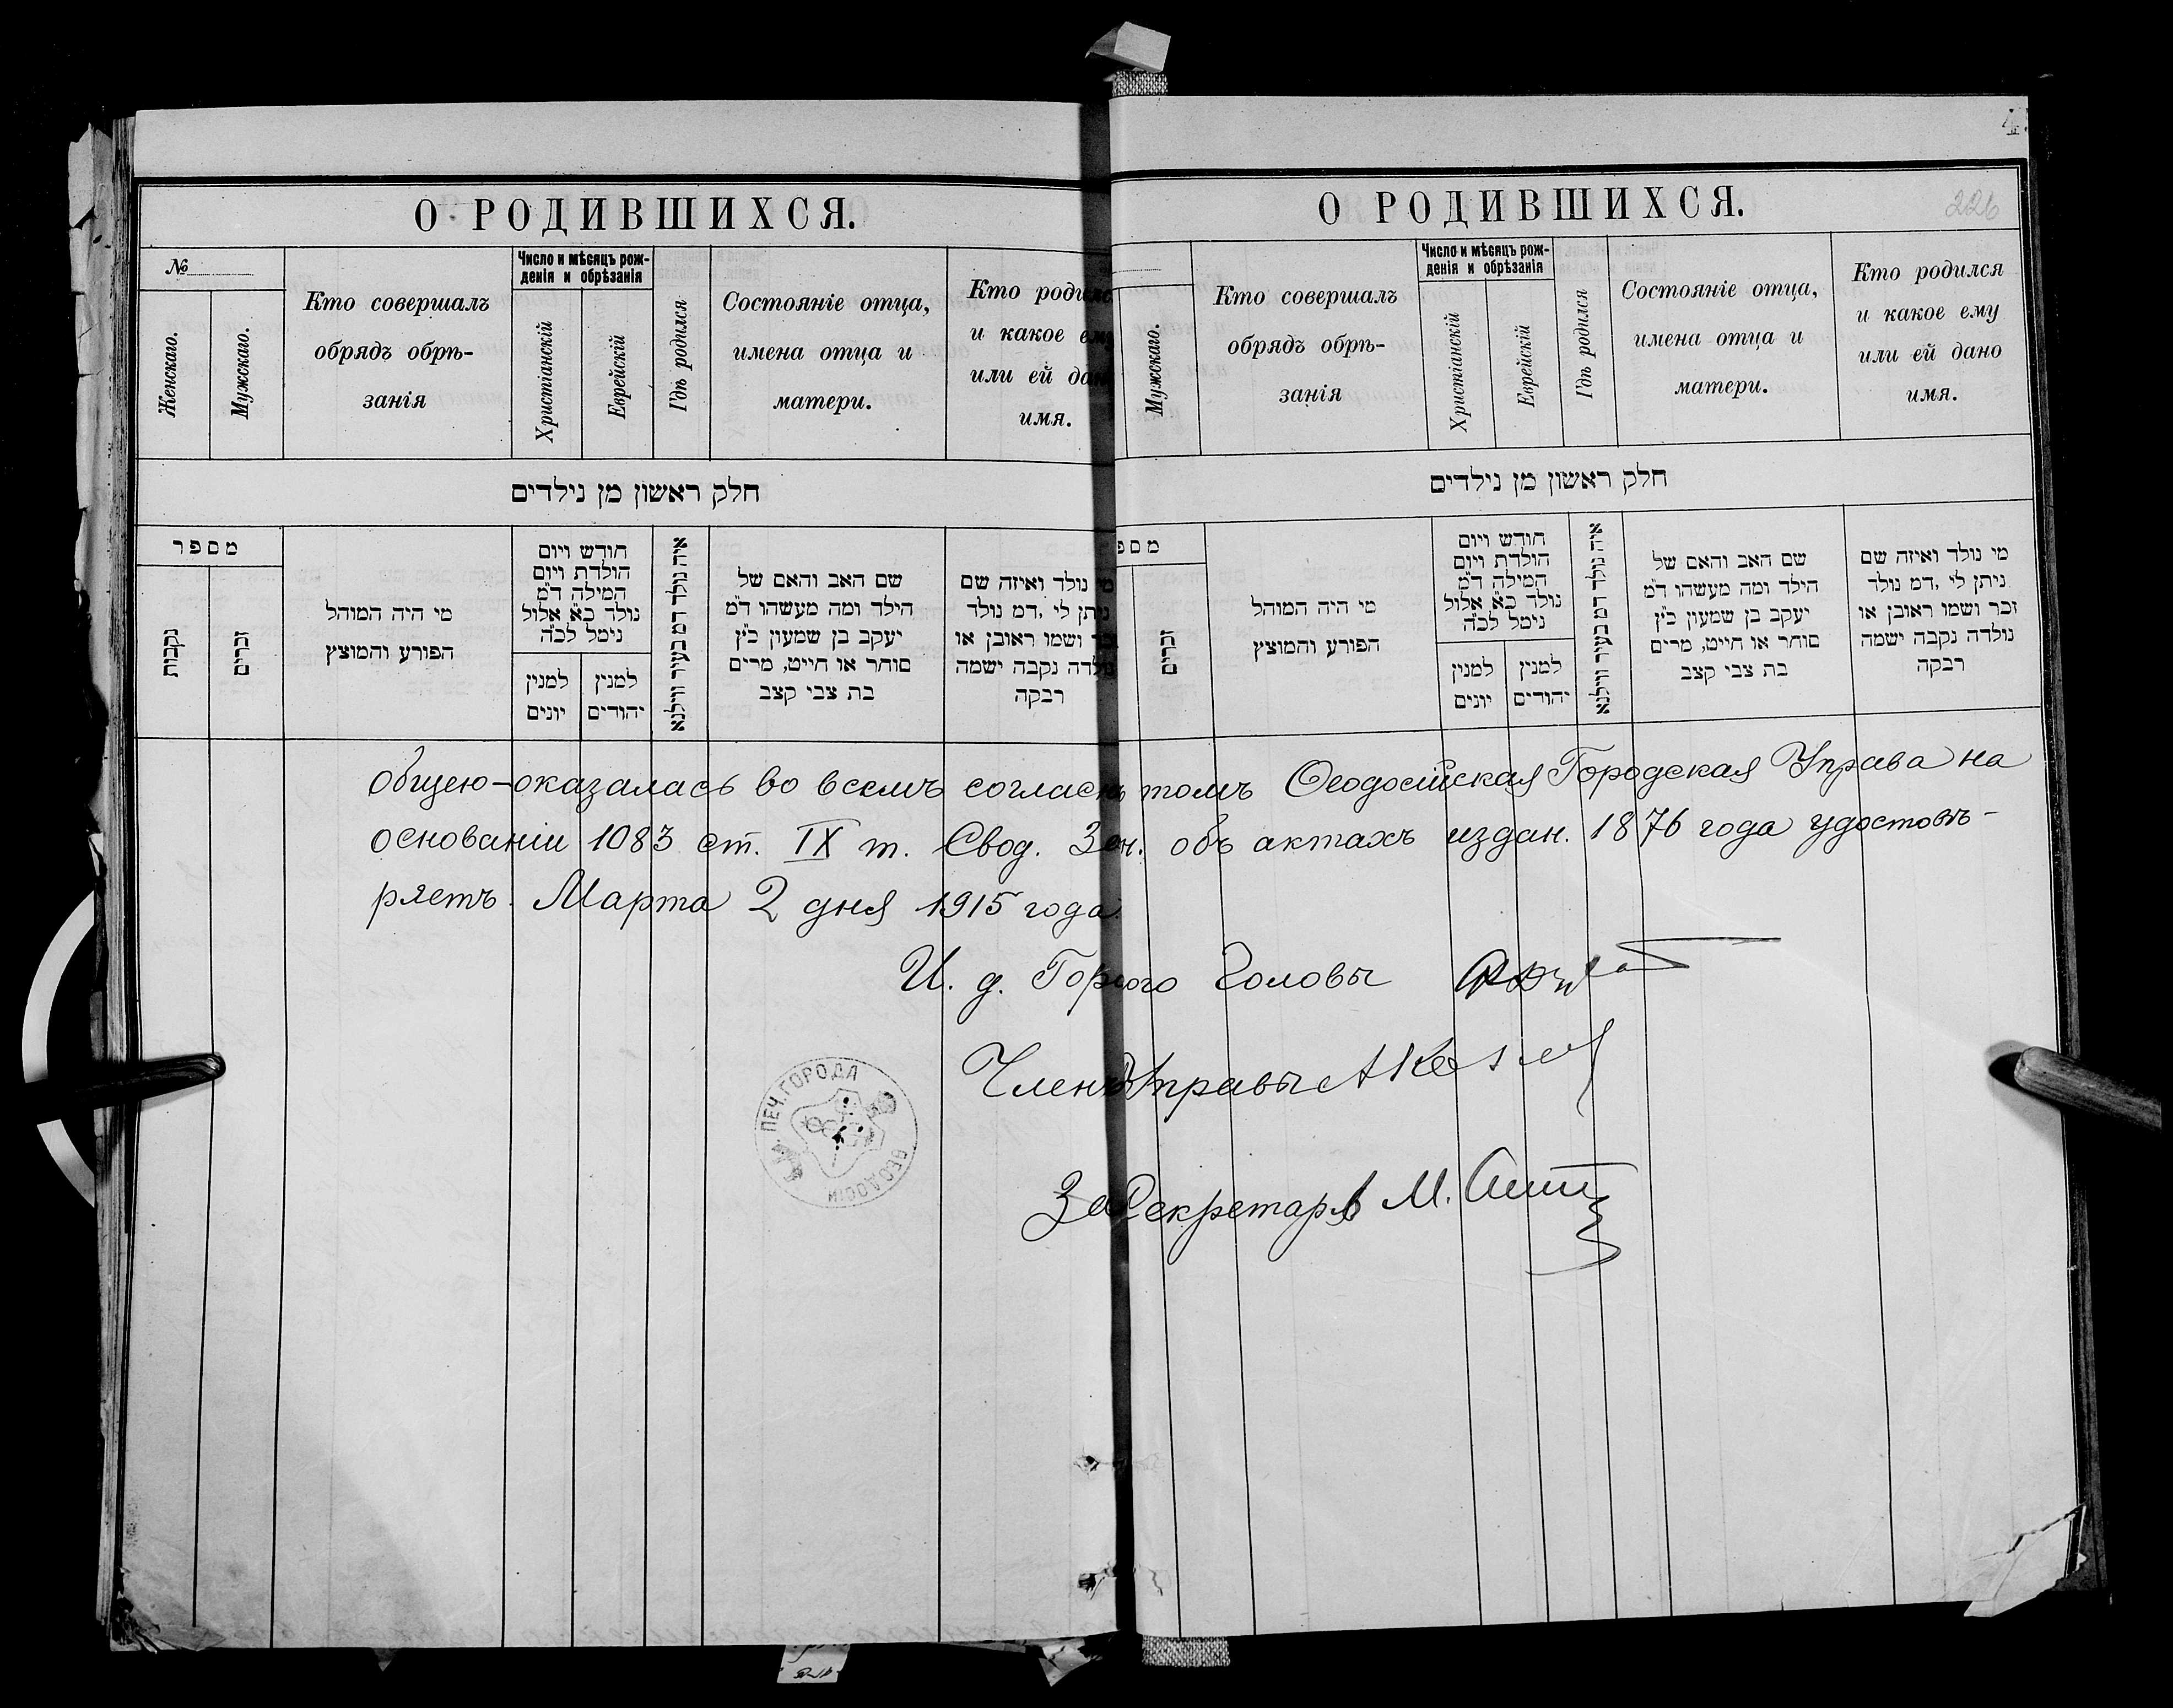 О РОДИВШИХСЯ.
№
Женскаго.
Мужскаго.
Кто совершалъ
обрядъ обрѣ-
занія
Число и мѣсяцъ рож-
денія и обрѣзанія
Христіанскій
Еврейскій
Гдѣ родился
Состояніе отца,
имена отца и
матери.
Кто родился
и какое ему
или ей дано
имя.
חלק ראשון מן נילדים
מספר
נקבות
זכרים
מי היה המוהל
הפורע והמוצץ
חודש ויום
הולדת ויום
המילה ד״מ
נולד כ״א אלול
נימל לכ״ה
למנין
יונים
למנין
יהודים
איה נולד דמ בעיר ווילנא
שם האב והאם של
הילד ומה מעשהו ד״מ
יעקב בן שמעון כ״ץ
סוחר או חייט, מרים
בת צבי קצב
מי נולד ואיזה שם
ניתן לי, דמ נולד
זכר ושמו ראובן או
נולדה נקבה ישמה
רבקה
О РОДИВШИХСЯ.
226
Мужскаго.
Кто совершалъ
обрядъ обрѣ-
занія
Число и мѣсяцъ рож-
денія и обрѣзанія
Христіанскій
Еврейскій
Гдѣ родился
Состояніе отца,
имена отца и
матери.
Кто родился
и какое ему
или ей дано
имя.
חלק ראשון מן נילדים
מספ
זכרים
מי היה המוהל
הפורע והמוצץ
חודש ויום
הולדת ויום
המילה ד״מ
נולד כ״א אלול
נימל לכ״ה
למנין
יונים
למנין
יהודים
איה נולד דמ בעיר ווילנא
שם האב והאם של
הילד ומה מעשהו ד״מ
יעקב בן שמעון כ״ץ
סוחר או חייט, מרים
בת צבי קצב
מי נולד ואיזה שם
ניתן לי, דמ נולד
זכר ושמו ראובן או
נולדה נקבה ישמה
רבקה
общею-оказалась во всемъ согласн томъ Ѳеодосійская Городская Управа на
основаніи 1083 ст. IX т. Свод. Зак. объ актахъ издан. 1876 года удостовѣ-
ряетъ. Марта 2 дня 1915 года.
И. д. Горского Головы
Членъ Управы
За Секретаря М.
ПЕЧ. ГОРОДА
ѲЕОДОСІИ